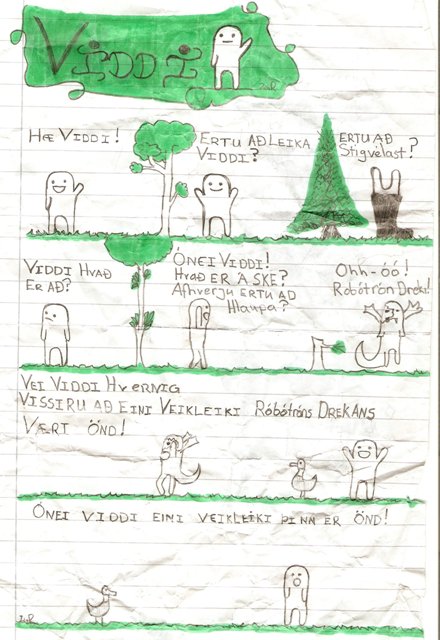 VIDDI
ZoR
HÆ VIDDI!
ERTU AÐ LEIKA
VIDDI?
ERTU AÐ
Stigvélast?
VIDDI HVAÐ
ER AÐ?
ÓNEI VIDDI!
HVAÐ ER A SKE?
Afhverju ERTU AÐ
Hlaupa?
Ohh-óó!
Róbótrón Dreki!
VEI VIDDI HVERNIG
VISSIRU AÐ EINI VEIKLEIKI RóBóTRóNS DREKANS
VÆRI ÖND!
ÓNEI VIDDI EINI VEIKLEIKI ÞINN ER ÖND!